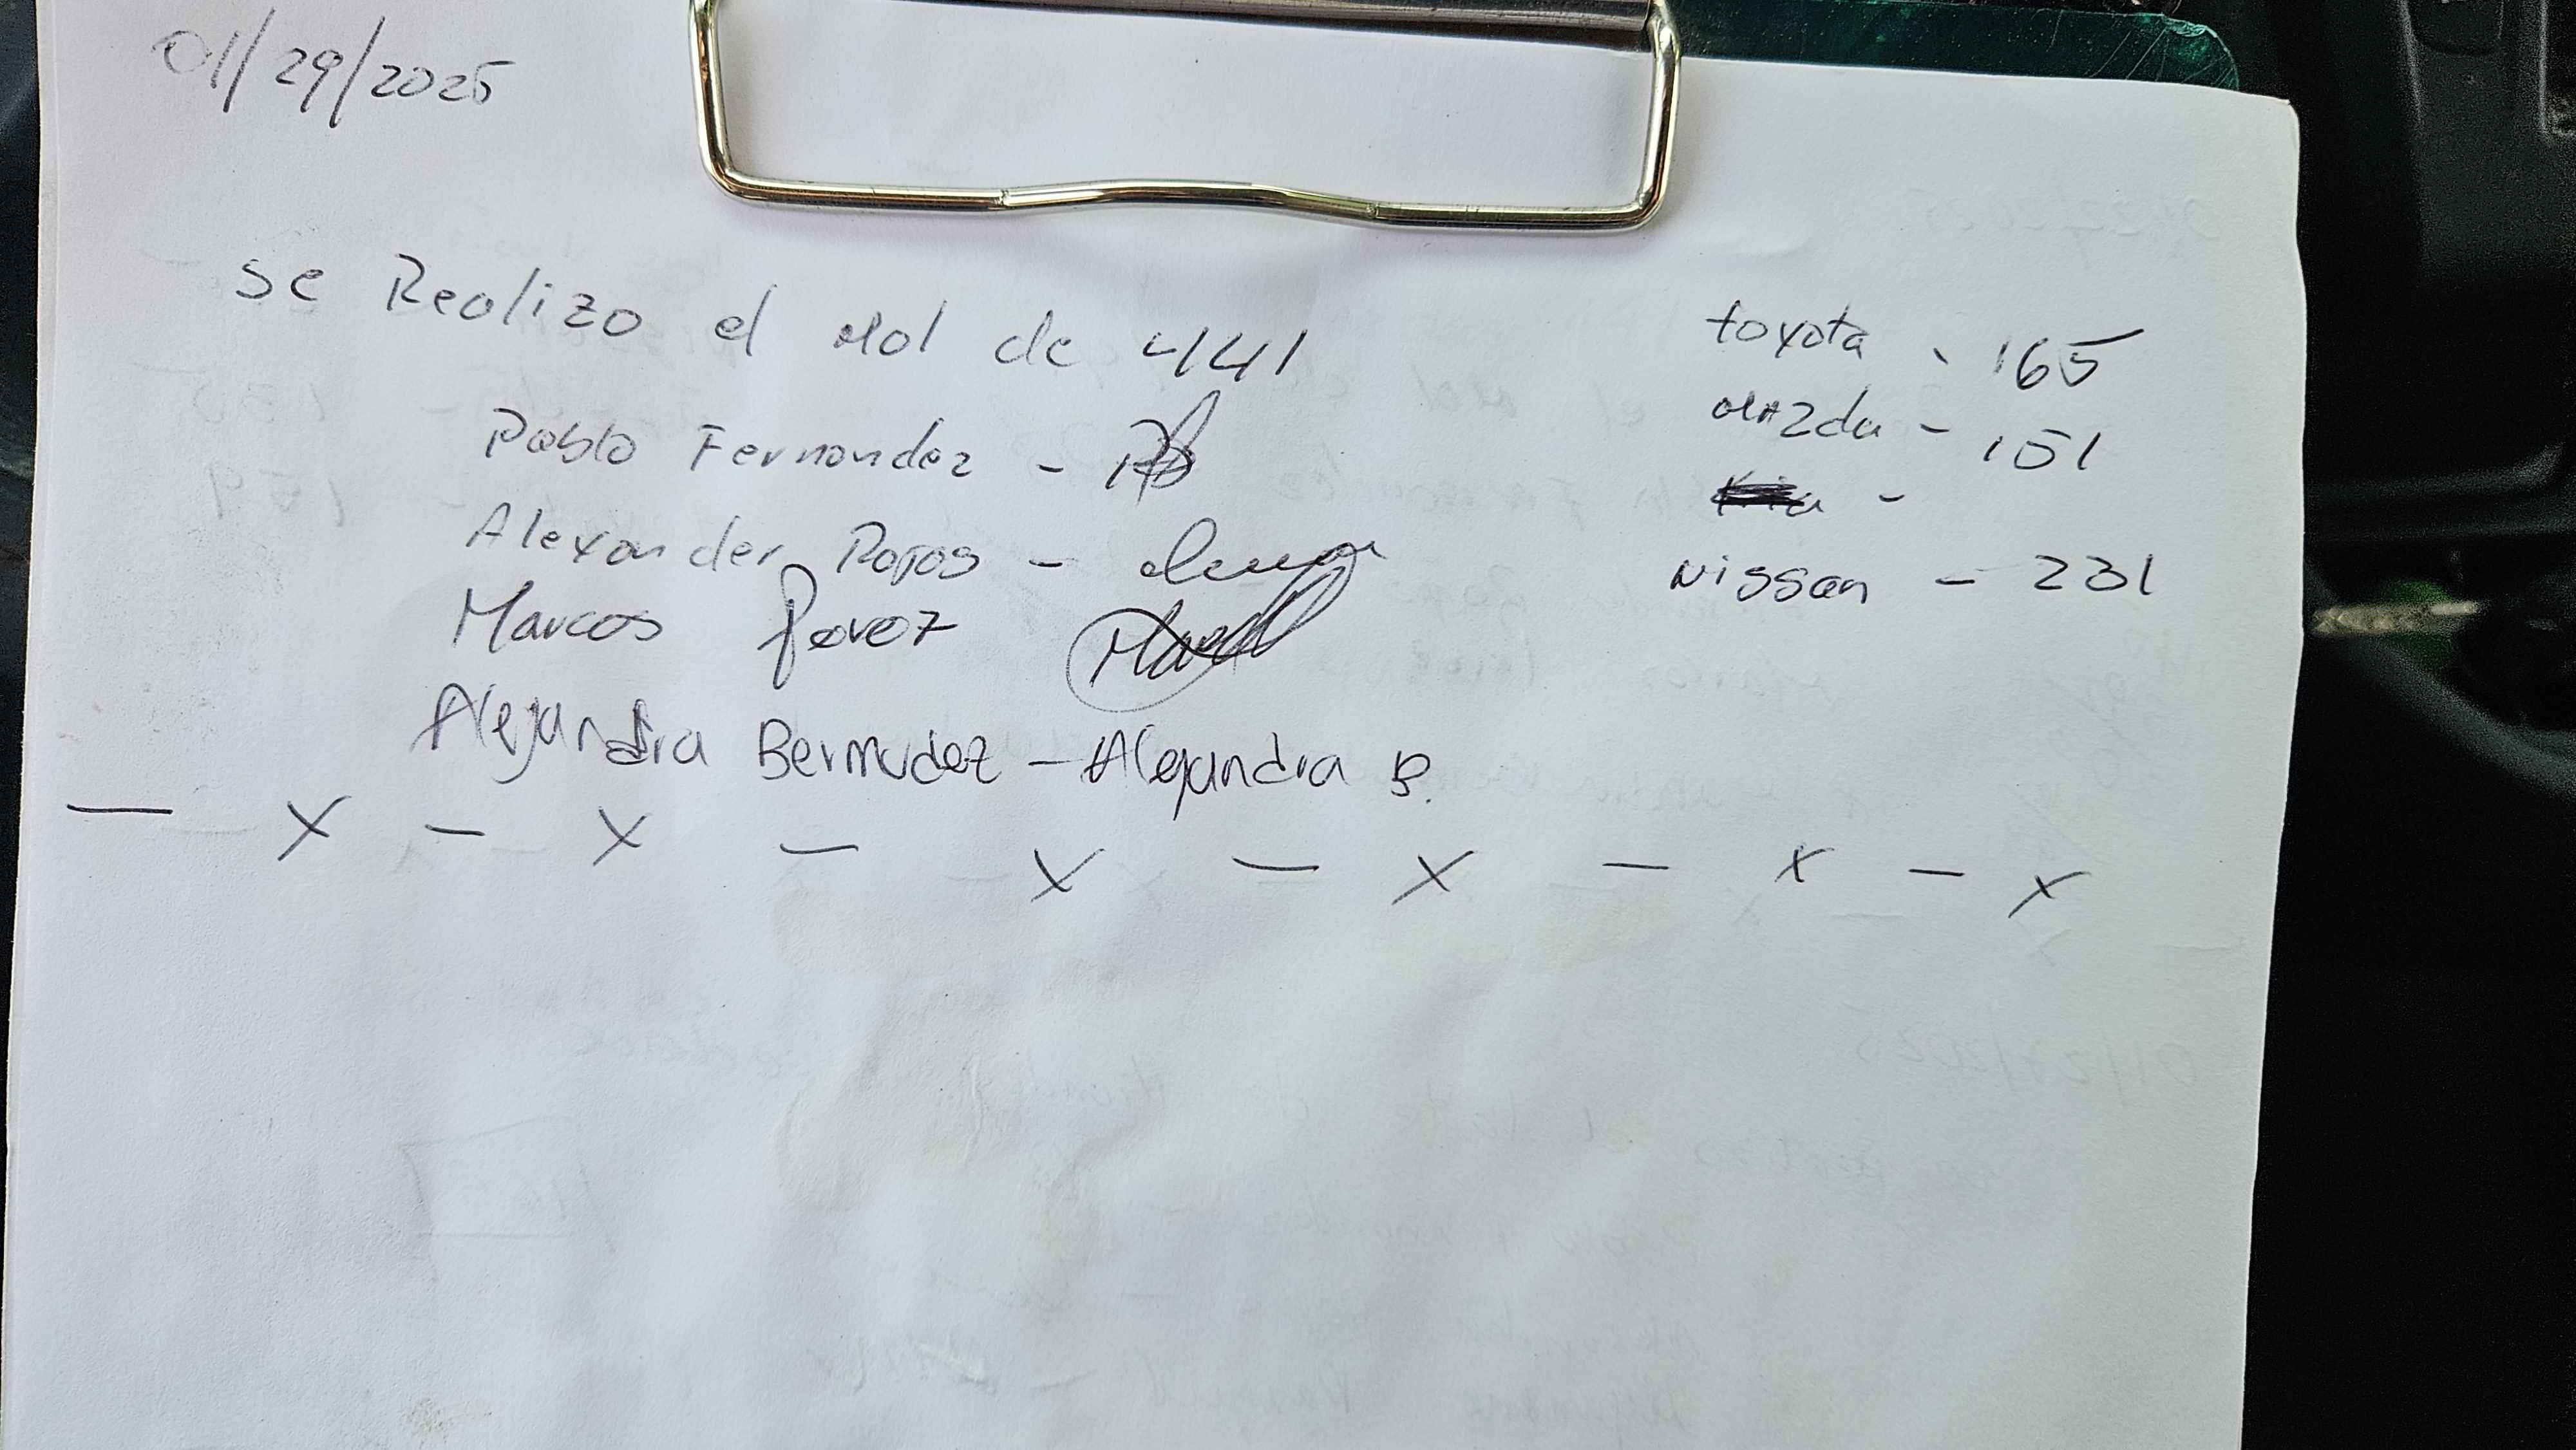 01/29/2025
Se Realizo el Mol de 441
Pablo Fernandez -
Alexander Rojas -
Marcos Perez
Alejandra Bermudez - Alejandra B.
— x — x — x — x — x — x
toyota - 165
Mazda - 151
Kia -
Nissan - 231